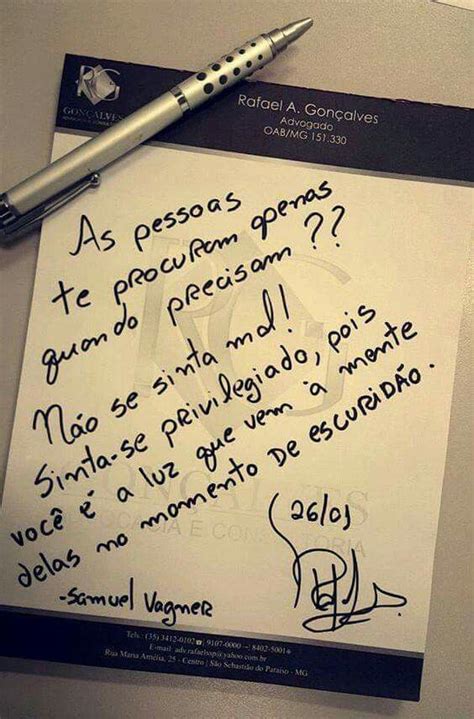 RG
GONÇALVES
Rafael A. Gonçalves
Advogado
OAB/MG 151.330
As pessoas
te procuram apenas
quando precisam??
Não se sinta mal!
Sinta-se privilegiado, pois
você é a luz que vem à mente
delas no momento de escuridão.
(26/01
-Samuel Vagner
Tels.: (35) 3412-0102 9107-0000 8402-5001
E-mail adv.rafaelsop@yahoo.com.br
Rua Maria Amélia, 25 - Centro | São Sebastião do Paraíso - MG